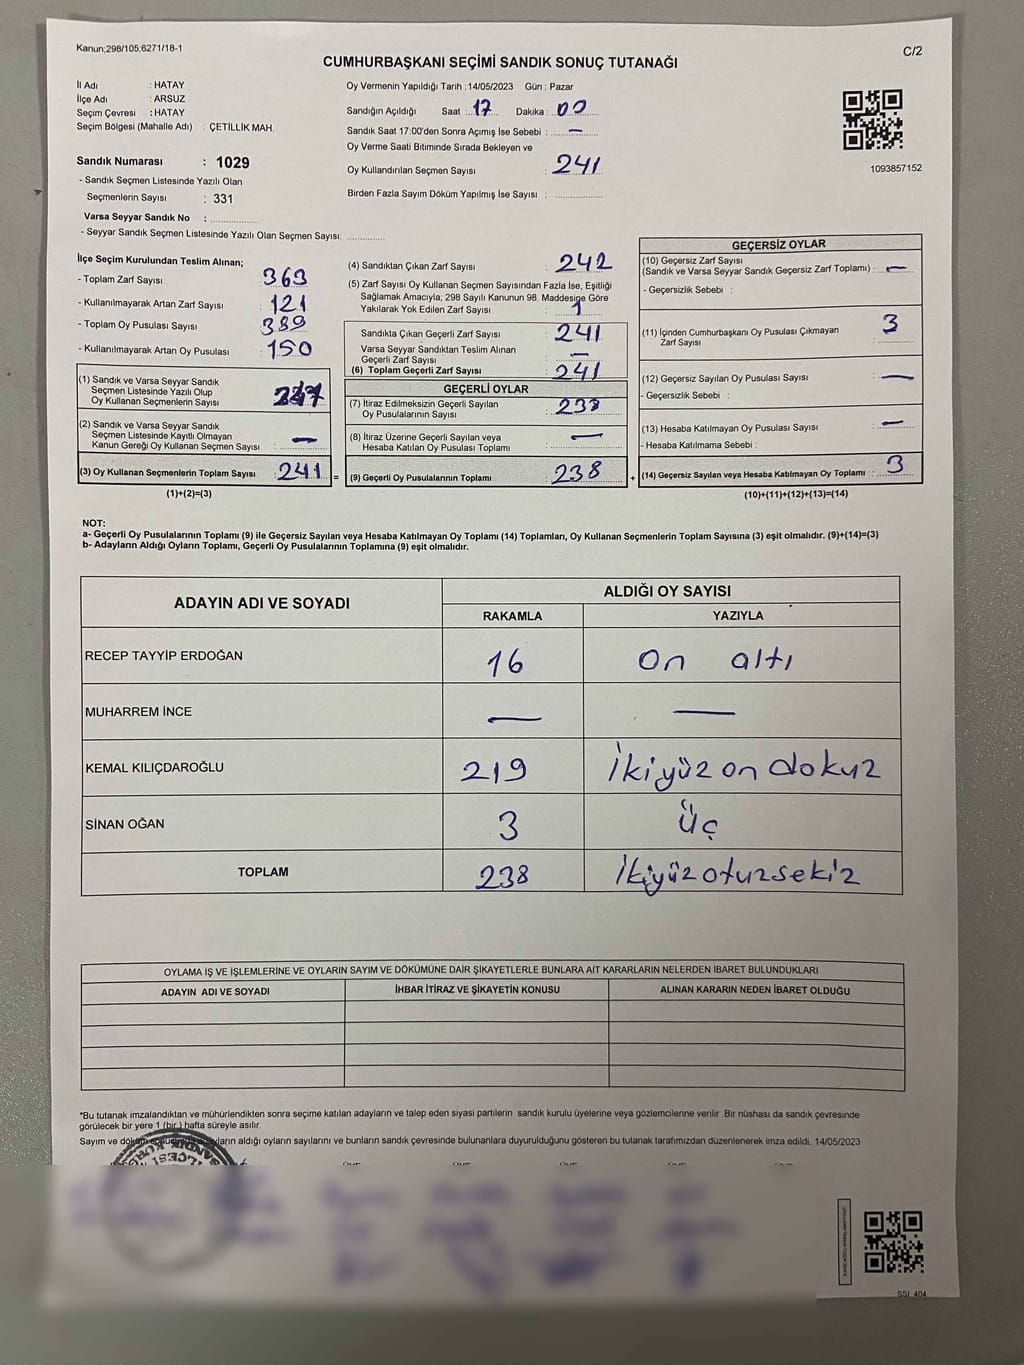 Kanun;298/105;6271/18-1
C/2
CUMHURBAŞKANI SEÇİMİ SANDIK SONUÇ TUTANAĞI
İl Adı : HATAY
İlçe Adı : ARSUZ
Seçim Çevresi : HATAY
Seçim Bölgesi (Mahalle Adı) : ÇETİLLİK MAH.
Sandık Numarası : 1029
- Sandık Seçmen Listesinde Yazılı Olan
Seçmenlerin Sayısı : 331
Varsa Seyyar Sandık No :
- Seyyar Sandık Seçmen Listesinde Yazılı Olan Seçmen Sayısı:
Oy Vermenin Yapıldığı Tarih : 14/05/2023 Gün : Pazar
Sandığın Açıldığı Saat : 17 Dakika : 00
Sandık Saat 17:00'den Sonra Açımış İse Sebebi : —
Oy Verme Saati Bitiminde Sırada Bekleyen ve
Oy Kullandırılan Seçmen Sayısı : 241
Birden Fazla Sayım Döküm Yapılmış İse Sayısı :
1093857152
İlçe Seçim Kurulundan Teslim Alınan;
- Toplam Zarf Sayısı 363
- Kullanılmayarak Artan Zarf Sayısı : 121
- Toplam Oy Pusulası Sayısı 389
- Kullanılmayarak Artan Oy Pusulası : 150
(1) Sandık ve Varsa Seyyar Sandık
Seçmen Listesinde Yazılı Olup
Oy Kullanan Seçmenlerin Sayısı
(2) Sandık ve Varsa Seyyar Sandık
Seçmen Listesinde Kayıtlı Olmayan
Kanun Gereği Oy Kullanan Seçmen Sayısı : —
(3) Oy Kullanan Seçmenlerin Toplam Sayısı : 241 =
(1)+(2)=(3)
(4) Sandıktan Çıkan Zarf Sayısı : 242
(5) Zarf Sayısı Oy Kullanan Seçmen Sayısından Fazla İse, Eşitliği
Sağlamak Amacıyla; 298 Sayılı Kanunun 98. Maddesine Göre
Yakılarak Yok Edilen Zarf Sayısı : 1
Sandıkta Çıkan Geçerli Zarf Sayısı : 241
Varsa Seyyar Sandıktan Teslim Alınan
Geçerli Zarf Sayısı : —
(6) Toplam Geçerli Zarf Sayısı : 241
GEÇERLİ OYLAR
(7) İtiraz Edilmeksizin Geçerli Sayılan
Oy Pusulalarının Sayısı : 238
(8) İtiraz Üzerine Geçerli Sayılan veya
Hesaba Katılan Oy Pusulası Toplamı : —
(9) Geçerli Oy Pusulalarının Toplamı : 238 +
GEÇERSİZ OYLAR
(10) Geçersiz Zarf Sayısı
(Sandık ve Varsa Seyyar Sandık Geçersiz Zarf Toplamı) : —
- Geçersizlik Sebebi :
(11) İçinden Cumhurbaşkanı Oy Pusulası Çıkmayan
Zarf Sayısı : 3
(12) Geçersiz Sayılan Oy Pusulası Sayısı : —
- Geçersizlik Sebebi :
(13) Hesaba Katılmayan Oy Pusulası Sayısı : —
- Hesaba Katılmama Sebebi :
(14) Geçersiz Sayılan veya Hesaba Katılmayan Oy Toplamı : 3
(10)+(11)+(12)+(13)=(14)
NOT:
a- Geçerli Oy Pusulalarının Toplamı (9) ile Geçersiz Sayılan veya Hesaba Katılmayan Oy Toplamı (14) Toplamları, Oy Kullanan Seçmenlerin Toplam Sayısına (3) eşit olmalıdır. (9)+(14)=(3)
b- Adayların Aldığı Oyların Toplamı, Geçerli Oy Pusulalarının Toplamına (9) eşit olmalıdır.
ADAYIN ADI VE SOYADI
ALDIĞI OY SAYISI
RAKAMLA YAZIYLA
RECEP TAYYİP ERDOĞAN 16 On altı
MUHARREM İNCE — —
KEMAL KILIÇDAROĞLU 219 İkiyüz on dokuz
SİNAN OĞAN 3 Üç
TOPLAM 238 İkiyüz otuz sekiz
OYLAMA İŞ VE İŞLEMLERİNE VE OYLARIN SAYIM VE DÖKÜMÜNE DAİR ŞİKAYETLERLE BUNLARA AİT KARARLARIN NELERDEN İBARET BULUNDUKLARI
ADAYIN ADI VE SOYADI İHBAR İTİRAZ VE ŞİKAYETİN KONUSU ALINAN KARARIN NEDEN İBARET OLDUĞU
*Bu tutanak imzalandıktan ve mühürlendikten sonra seçime katılan adayların ve talep eden siyasi partilerin sandık kurulu üyelerine veya gözlemcilerine verilir. Bir nüshası da sandık çevresinde
görülecek bir yere 1 (bir) hafta süreyle asılır.
Sayım ve aldığı oyların sayılarını ve bunların sandık çevresinde bulunanlara duyurulduğunu gösteren bu tutanak tarafımızdan düzenlenerek imza edildi. 14/05/2023
SSI_404